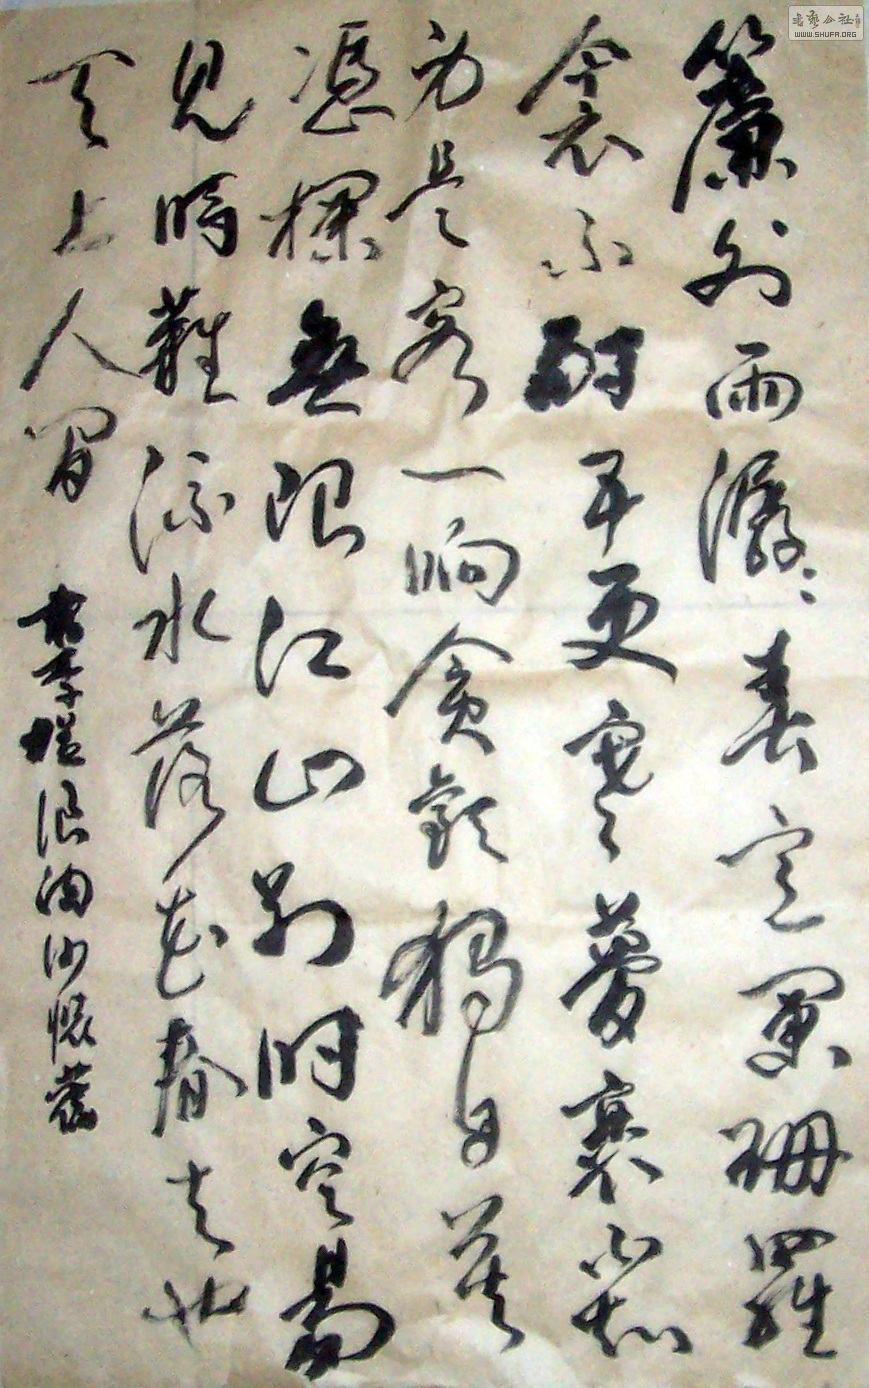 簾外雨潺潺春意闌珊羅
衾不耐五更寒夢裏不知
身是客一晌貪歡獨自莫
憑欄無限江山別時容易
見時難流水落花春去也
天上人間
書李煜浪淘沙懷舊
书艺公社
WWW.SHUFA.ORG